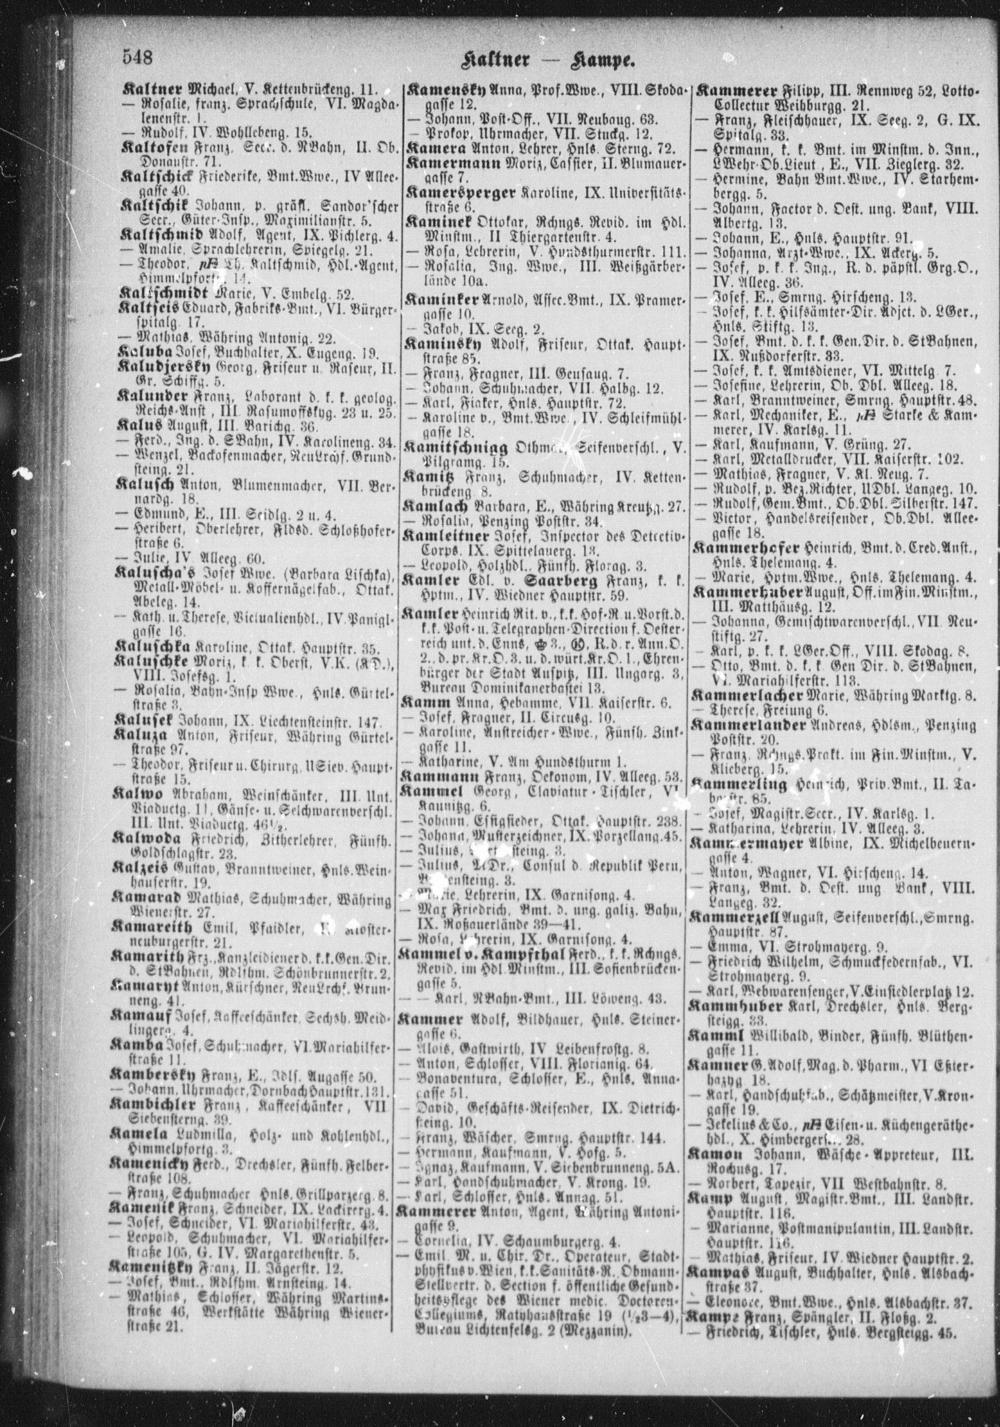 548
Kaltner — Kampe.
Kaltner Michael, V. Kettenbrückeng. 11.
— Rosalie, franz. Sprachschule, VI. Magda-
lenenstr. 1.
— Rudolf, IV. Wohllebeng. 15.
Kaltofen Franz, Secr. d. NBahn, II. Ob.
Donaustr. 71.
Kaltschick Friederike, Bmt.Wwe., IV Allee-
gasse 40.
Kaltschik Johann, p. gräfl. Sandor'scher
Secr., Güter-Insp., Maximilianstr. 5.
Kaltschmid Adolf, Agent, IX. Pichlerg. 4.
— Amalie, Sprachlehrerin, Spiegelg. 21.
— Theodor, Th. Kaltschmid, Hdl.-Agent,
Himmelpfortg. 14.
Kaltschmidt Marie, V. Embelg. 52.
Kaltseis Eduard, Fabriks-Bmt., VI. Bürger-
spitalg. 17.
— Mathias, Währing Antonig. 22.
Kaluba Josef, Buchhalter, X. Eugeng. 19.
Kaludjersky Georg, Friseur u. Raseur, II.
Gr. Schiffg. 5.
Kalunder Franz, Laborant d. k. k. geolog.
Reichs-Anst., III. Rasumoffskyg. 23 u. 25.
Kalus August, III. Barichg. 36.
— Ferd., Ing. d. SBahn, IV. Karolineng. 34.
— Wenzel, Backofenmacher, NeuLrchf. Grund-
steing. 21.
Kalusch Anton, Blumenmacher, VII. Ber-
nardg. 18.
— Edmund, E., III. Seidlg. 2 u. 4.
— Heribert, Oberlehrer, Fldsd. Schloßhofer-
straße 6.
— Julie, IV. Alleeg. 60.
Kaluscha's Josef Wwe. (Barbara Lischka),
Metall-Möbel- u. Koffernägelfab., Ottak.
Abeleg. 14.
— Kath. u. Therese, Victualienhdl., IV. Panigl-
gasse 16.
Kaluschka Karoline, Ottak. Hauptstr. 35.
Kaluschke Moriz, k. k. Oberst, V.K. (KD.),
VIII. Josefsg. 1.
— Rosalia, Bahn-Insp Wwe., Hnls. Gürtel-
straße 3.
Kalusek Johann, IX. Liechtensteinstr. 147.
Kaluza Anton, Friseur, Währing Gürtel-
straße 97.
— Theodor, Friseur u. Chirurg, USiev. Haupt-
straße 15.
Kalwo Abraham, Weinschänker, III. Unt.
Viaductg. 11, Gänse- u. Selchwarenverschl.
III. Unt. Viaductg. 46½.
Kalwoda Friedrich, Zitherlehrer, Fünfh.
Goldschlagstr. 23.
Kalzeis Gustav, Branntweiner, Hnls. Wein-
hauserstr. 19.
Kamarad Mathias, Schuhmacher, Währing
Wienerstr. 27.
Kamareith Emil, Pfaidler, Kloster-
neuburgerstr. 21.
Kamarith Frz., Kanzleidiener d. k.k. Gen. Dir.
d. StBahnen, Rdlfshm. Schönbrunnerstr. 2.
Kamaryt Anton, Kürschner, NeuLrchf. Brun-
neng. 41.
Kamauf Josef, Kaffeeschänker, Sechsh. Meid-
lingerg. 4.
Kamba Josef, Schuhmacher, VI. Mariahilfer-
straße 11.
Kambersky Franz, E., Jdls. Augasse 50.
— Johann, Uhrmacher, Dornbach Hauptstr. 131.
Kambichler Franz, Kaffeeschänker, VII
Siebensterng. 39.
Kamela Ludmilla, Holz- und Kohlenhdl.,
Himmelpfortg. 3.
Kamenicky Ferd., Drechsler, Fünfh. Felber-
straße 108.
— Franz, Schuhmacher Hnls. Grillparzerg. 8.
Kamenik Franz, Schneider, IX. Lackirerg. 4.
— Josef, Schneider, VI. Mariahilferstr. 43.
— Leopold, Schuhmacher, VI. Mariahilfer-
straße 105, G. IV. Margarethenstr. 5.
Kamenitzky Franz, II. Jägerstr. 12.
— Josef, Bmt., Rdlfshm. Arnsteing. 14.
— Mathias, Schlosser, Währing Martins-
straße 46, Werkstätte Währing Wiener-
straße 21.
Kamensky Anna, Prof. Wwe., VIII. Skoda-
gasse 12.
— Johann, Post-Off., VII. Neubaug. 63.
— Prokop, Uhrmacher, VII. Stuckg. 12.
Kamera Anton, Lehrer, Hnls. Sterng. 72.
Kamermann Moriz, Cassier, II. Blumauer-
gasse 7.
Kamersperger Karoline, IX. Universitäts-
straße 6.
Kaminek Ottokar, Rchngs. Revid. im Hdl.
Minstm., II Thiergartenstr. 4.
— Rosa, Lehrerin, V. Hundsthurmerstr. 111.
— Rosalia, Ing. Wwe., III. Weißgärber-
lände 10a.
Kaminker Arnold, Assec. Bmt., IX. Pramer-
gasse 10.
— Jakob, IX. Seeg. 2.
Kaminsky Adolf, Friseur, Ottak. Haupt-
straße 85.
— Franz, Fragner, III. Geusaug. 7.
— Johann, Schuhmacher, VII. Halbg. 12.
— Karl, Fiaker, Hnls. Hauptstr. 72.
— Karoline v., Bmt. Wwe., IV. Schleifmühl-
gasse 18.
Kamitschnigg Othmar, Seifenverschl., V.
Pilgramg. 15.
Kamitz Franz, Schuhmacher, IV. Ketten-
brückeng. 8.
Kamlach Barbara, E., Währing Kreutzg. 27.
— Rosalia, Penzing Poststr. 34.
Kamleitner Josef, Inspector des Detectiv-
Corps, IX. Spittelauerg. 13.
— Leopold, Holzhdl., Fünfh. Florag. 3.
Kamler Edl. v. Saarberg Franz, k. k.
Hptm., IV. Wiedner Hauptstr. 59.
Kamler Heinrich Rit. v., k.k. Hof-R u. Vorst. d.
k.k. Post- u. Telegraphen-Direction f. Oester-
reich unt. d. Enns, 3., R. d. r. Ann. O.
2., d. pr. Kr. O. 3. u. d. würt. Kr. O. 1., Ehren-
bürger der Stadt Auspitz, III. Ungarg. 3,
Bureau Dominikanerbastei 13.
Kamm Anna, Hebamme, VII. Kaiserstr. 6.
— Josef, Fragner, II. Circusg. 10.
— Karoline, Anstreicher-Wwe., Fünfh. Zink-
gasse 11.
— Katharine, V. Am Hundsthurm 1.
Kammann Franz, Oekonom, IV. Alleeg. 53.
Kammel Georg, Claviatur-Tischler, VI.
Kaunitzg. 6.
— Johann, Essigsieder, Ottak. Hauptstr. 238.
— Johann, Musterzeichner, IX. Porzellang. 45.
— Julius, steing. 3.
— Julius, Dr., Consul d. Republik Peru,
ensteing. 3.
— Marie, Lehrerin, IX. Garnisong. 4.
— Max Friedrich, Bmt. d. ung. galiz. Bahn,
IX. Roßauerlände 39—41.
— Rosa, Lehrerin, IX. Garnisong. 4.
Kammel v. Kampfthal Ferd., k. k. Rchngs.
Revid. im Hdl. Minstm., III. Sofienbrücken-
gasse 5.
— — Karl, NBahn-Bmt., III. Löweng. 43.
Kammer Adolf, Bildhauer, Hnls. Steiner-
gasse 6.
— Alois, Gastwirth, IV Leibenfrostg. 8.
— Anton, Schlosser, VIII. Florianig. 64.
— Bonaventura, Schlosser, E., Hnls. Anna-
gasse 51.
— David, Geschäfts-Reisender, IX. Dietrich-
steing. 10.
— Franz, Wäscher, Smrng. Hauptstr. 144.
— Hermann, Kaufmann, V. Hofg. 5.
— Ignaz, Kaufmann, V. Siebenbrunneng. 5A.
— Karl, Handschuhmacher, V. Krong. 19.
— Karl, Schlosser, Hnls. Annag. 51.
Kammerer Anton, Agent, Währing Antoni-
gasse 9.
— Cornelia, IV. Schaumburgerg. 4.
— Emil, M. u. Chir. Dr., Operateur, Stadt-
physikus v. Wien, k.k. Sanitäts-R., Obmann-
Stellvertr. d. Section f. öffentliche Gesund-
heitspflege des Wiener medic. Doctoren-
Collegiums, Rathhausstraße 19 (½3—4),
Bureau Lichtenfelsg. 2 (Mezzanin).
Kammerer Filipp, III. Rennweg 52, Lotto-
Collectur Weihburgg. 21.
— Franz, Fleischhauer, IX. Seeg. 2, G. IX.
Spitalg. 33.
— Hermann, k. k. Bmt. im Minstm. d. Inn.,
LWehr-Ob. Lieut., E., VII. Zieglerg. 32.
— Hermine, Bahn Bmt. Wwe., IV. Starhem-
bergg. 5.
— Johann, Factor d. Oest. ung. Bank, VIII.
Albertg. 13.
— Johann, E., Hnls. Hauptstr. 91.
— Johanna, Arzt-Wwe., IX. Ackerg. 5.
— Josef, p. k. k. Ing., R. d. päpstl. Grg. O.,
IV. Alleeg. 36.
— Josef, E., Smrng. Hirscheng. 13.
— Josef, k. k. Hilfsämter-Dir. Adjct. d. LGer.,
Hnls. Stiftg. 13.
— Josef, Bmt. d. k. k. Gen. Dir. d. StBahnen,
IX. Nußdorferstr. 83.
— Josef, k. k. Amtsdiener, VI. Mittelg. 7.
— Josefine, Lehrerin, Ob. Dbl. Alleeg. 18.
— Karl, Branntweiner, Smrng. Hauptstr. 48.
— Karl, Mechaniker, E., Starke & Kam-
merer, IV. Karlsg. 11.
— Karl, Kaufmann, V. Grüng. 27.
— Karl, Metalldrucker, VII. Kaiserstr. 102.
— Mathias, Fragner, V. Kl. Neug. 7.
— Rudolf, p. Bez. Richter, UDbl. Langeg. 10.
— Rudolf, Gem. Bmt., Ob. Dbl. Silberstr. 147.
— Victor, Handelsreisender, Ob. Dbl. Allee-
gasse 18.
Kammerhofer Heinrich, Bmt. d. Cred. Anst.,
Hnls. Thelemang. 4.
— Marie, Hptm. Wwe., Hnls. Thelemang. 4.
Kammerhuber August, Off. im Fin. Minstm.,
III. Matthäusg. 12.
— Johanna, Gemischtwarenverschl., VII. Neu-
stiftg. 27.
— Karl, p. k. k. LGer. Off., VIII. Skodag. 8.
— Otto, Bmt. d. k. k. Gen Dir. d. StBahnen,
VI. Mariahilferstr. 113.
Kammerlacher Marie, Währing Marktg. 8.
— Therese, Freiung 6.
Kammerlander Andreas, Hdlsm., Penzing
Poststr. 20.
— Franz, Rchngs. Prakt. im Fin. Minstm., V.
Klieberg. 15.
Kammerling Heinrich, Priv. Bmt., II. Ta-
borstr. 85.
— Josef, Magistr. Secr., IV. Karlsg. 1.
— Katharina, Lehrerin, IV. Alleeg. 3.
Kammermayer Albine, IX. Michelbeuern-
gasse 4.
— Anton, Wagner, VI. Hirscheng. 14.
— Franz, Bmt. d. Oest. ung Bank, VIII.
Langeg. 32.
Kammerzell August, Seifenverschl., Smrng.
Hauptstr. 87.
— Emma, VI. Strohmayerg. 9.
— Friedrich Wilhelm, Schmuckfedernfab., VI.
Strohmayerg. 9.
— Karl, Webwarensenger, V. Einsiedlerplatz 12.
Kammhuber Karl, Drechsler, Hnls. Berg-
steigg. 33.
Kamml Willibald, Binder, Fünfh. Blüthen-
gasse 11.
Kamner G. Adolf, Mag. d. Pharm., VI Eßter-
hazyg. 18.
— Karl, Handschuhfab., Schätzmeister, V. Kron-
gasse 19.
— Jekelius & Co., Eisen- u. Küchengeräthe-
hdl., X. Himbergerstr. 28.
Kamon Johann, Wäsche-Appreteur, III.
Rochusg. 17.
— Norbert, Tapezir, VII Westbahnstr. 8.
Kamp August, Magistr. Bmt., III. Landstr.
Hauptstr. 116.
— Marianne, Postmanipulantin, III. Landstr.
Hauptstr. 116.
— Mathias, Friseur, IV. Wiedner Hauptstr. 2.
Kampas August, Buchhalter, Hnls. Alsbach-
straße 37.
— Eleonore, Bmt. Wwe., Hnls. Alsbachstr. 37.
Kampe Franz, Spängler, II. Floßg. 2.
— Friedrich, Tischler, Hnls. Bergsteigg. 45.